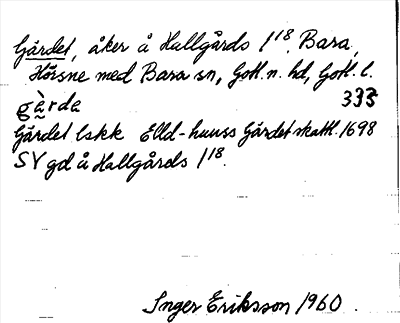 Gärdet, åker å Hallgårds 1¹⁸, Bara,
Hörsne med Bara sn, Gotl. n. hd, Gotl. l.
gà̰rda 335
Gärdet lskk Elld-huuss Gärdet skattl. 1698
SV gd å Hallgårds 1¹⁸.
Inger Eriksson 1960.